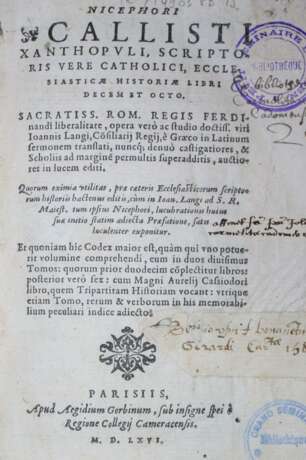 NICEPHORI
CALLISTI
XANTHOPVLI, SCRIPTO-
RIS VERE CATHOLICI, ECCLE-
SIASTICÆ HISTORIÆ LIBRI
DECEM ET OCTO.
SACRATISS. ROM. REGIS FERDI-
nandi liberalitate, opera verò ac studio doctiss. viri
Ioannis Langi, Cōsiliarij Regij, è Græco in Latinum
sermonem translati, nuncq; denuò castigatiores, &
Scholiis ad marginē permultis superadditis, auctio-
res in lucem editi.
Quorum eximia vtilitas, præ cæteris Ecclesiasticorum scripto-
rum historiis hactenus editis, cùm in Ioan. Langi ad S. R.
Maiest. tum ipsius Nicephori, lucubrationis huius
suæ initio statim adiecta Præfatione, satis
luculenter exponitur.
Et quoniam hic Codex maior est, quàm qui vno potue-
rit volumine comprehendi, eum in duos diuisimus
Tomos: quorum prior duodecim cōplectitur libros:
posterior verò sex: cum Magni Aurelij Cassiodori
libro, quem Tripartitam Historiam vocant: vtrique
etiam Tomo, rerum & verborum in his memorabi-
lium peculiari indice adiecto.
PARISIIS,
Apud Aegidium Gorbinum, sub insigne spei è
Regione Collegij Cameracensis.
M. D. LXVI.
GRAND
Bibliothèque
BIBLIOTHÈQUE